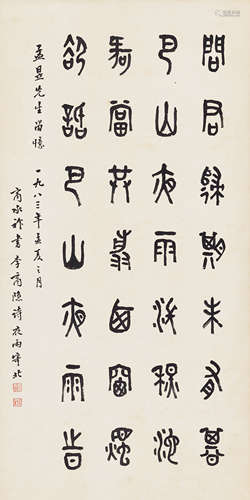 問君歸期未有期
巴山夜雨漲秋池
何當共剪西窗燭
卻話巴山夜雨時
孟先生留憶
一九八三年孟夏之月
商承祚書李商隱詩夜雨寄北